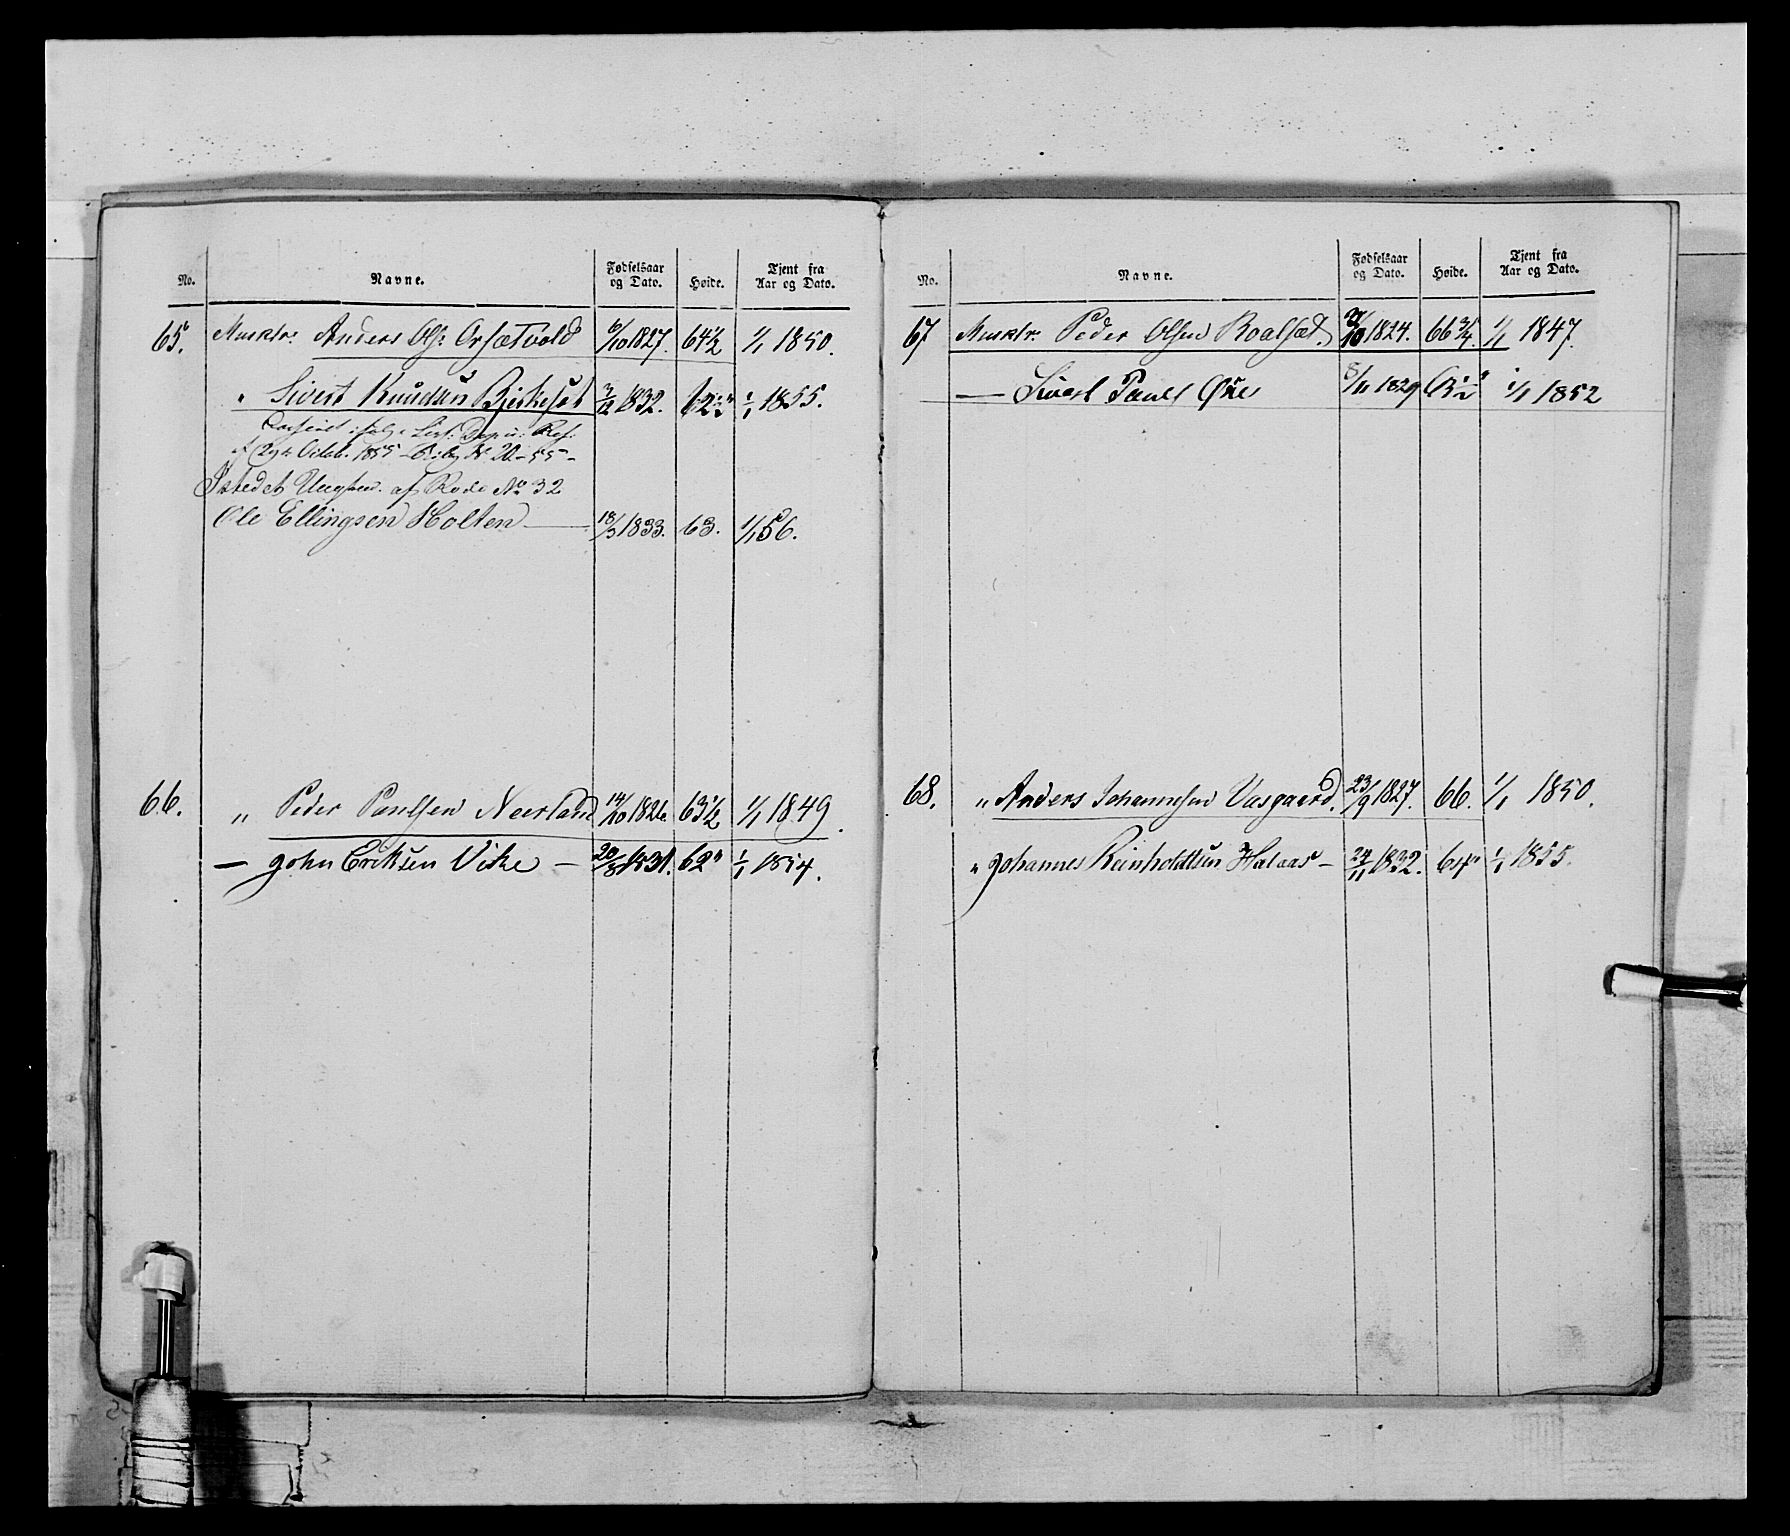 No. Navne. Fødselsaar og Dato. Høide. Tjent fra Aar og Dato.
65. Musktr. Anders Ols: Orsætvold 6/10 1827. 64½ 1/1 1850.
" Sivert Knudsen Bjerkeset 3/12 1832. 62½" 1/1 1855.
Octob. 1855 - No 20-55-
Istedet af Rode No 32
Ole Ellingsen Holten 18/3 1833. 63. 1/1 56.
66. " Peder Paulsen Neerland 14/10 1826. 63½ 1/1 1849.
— John Eriksen Vike — 20/8 1831. 62" 1/1 1854.
No. Navne. Fødselsaar og Dato. Høide. Tjent fra Aar og Dato.
67 Musktr. Peder Olsen Roalset. 1824. 66¾. 1/1 1847.
— Sivert Paulsen Øre 8/11 1829 63½" 1/1 1852
68. " Anders Johannesen Vaagaard. 23/9 1827. 66. 1/1 1850.
" Johannes Reinholdtsen Halaas — 24/11 1832. 64" 1/1 1855.